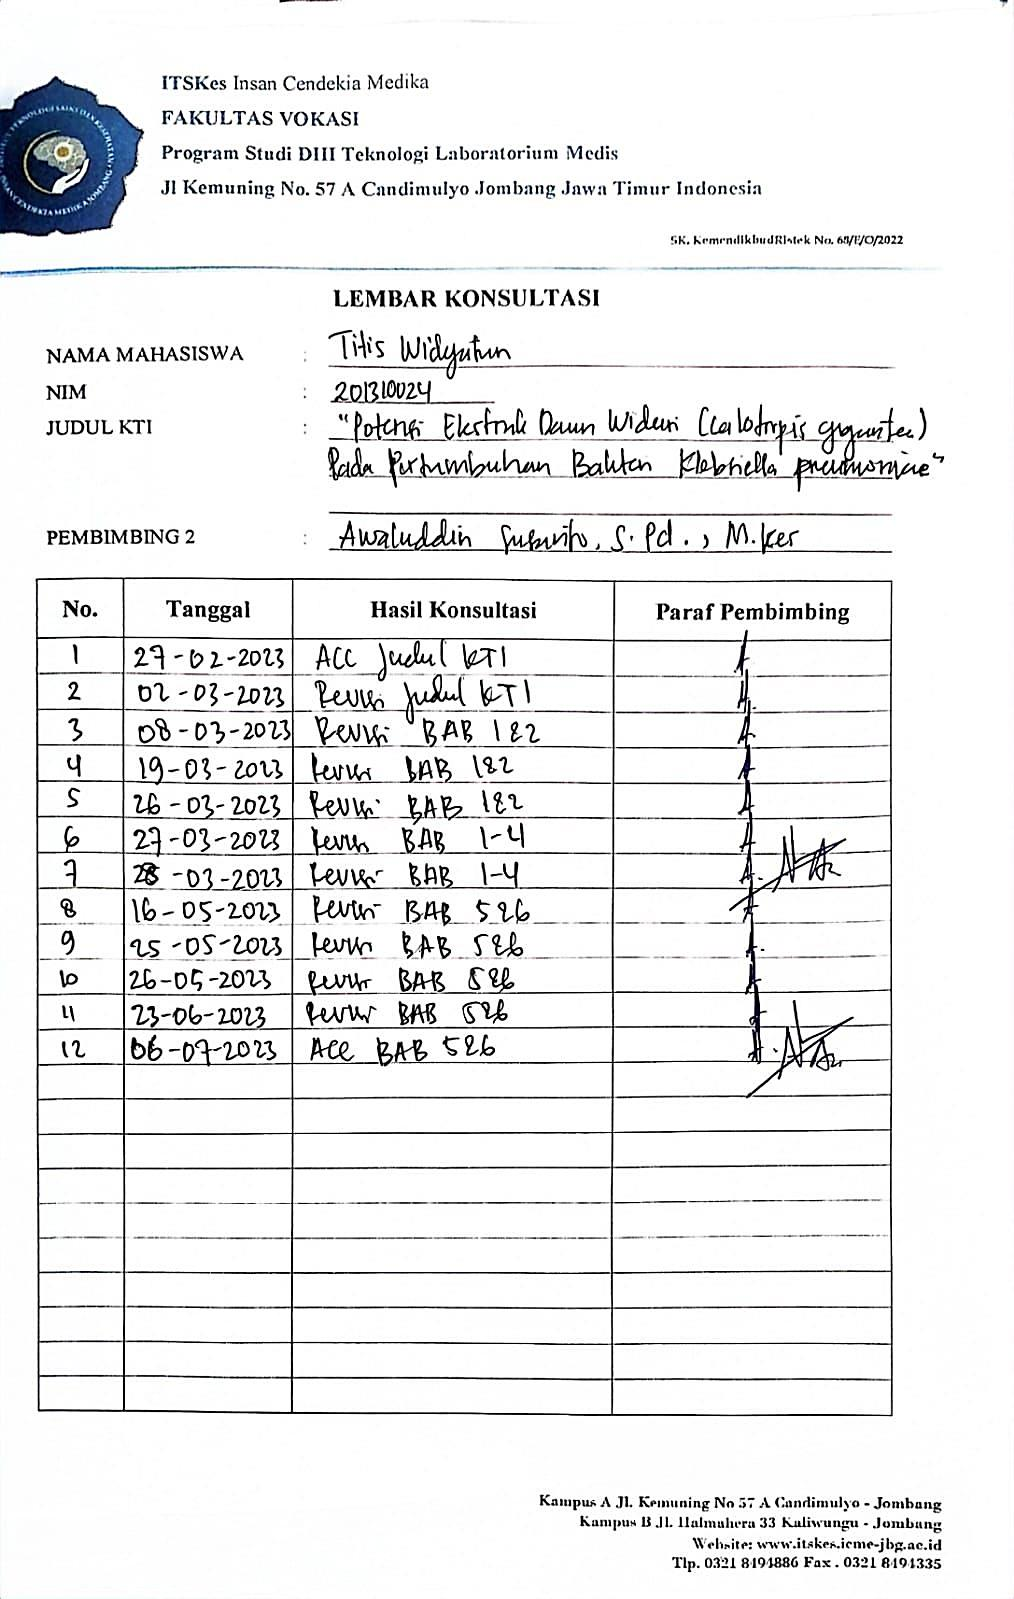 ITSKes Insan Cendekia Medika
FAKULTAS VOKASI
Program Studi DIII Teknologi Laboratorium Medis
Jl Kemuning No. 57 A Candimulyo Jombang Jawa Timur Indonesia
SK. KemendikbudRistek No. 68/E/O/2022
LEMBAR KONSULTASI
NAMA MAHASISWA : Titis Widyatun
NIM : 201310024
JUDUL KTI : "Potensi Ekstrak Daun Widuri (Calotropis gigantea)
Pada Pertumbuhan Bakteri Klebsiella pneumoniae"
PEMBIMBING 2 : Awaluddin Susanto, S.Pd., M.Kes
No. Tanggal Hasil Konsultasi Paraf Pembimbing
1 27-02-2023 ACC Judul KTI
2 02-03-2023 Revisi Judul KTI
3 08-03-2023 Revisi BAB 1&2
4 19-03-2023 Revisi BAB 1&2
5 26-03-2023 Revisi BAB 1&2
6 27-03-2023 Revisi BAB 1-4
7 28-03-2023 Revisi BAB 1-4
8 16-05-2023 Revisi BAB 5&6
9 25-05-2023 Revisi BAB 5&6
10 26-05-2023 Revisi BAB 5&6
11 23-06-2023 Revisi BAB 5&6
12 06-07-2023 Acc BAB 5&6
Kampus A Jl. Kemuning No 57 A Candimulyo - Jombang
Kampus B Jl. Halmahera 33 Kaliwungu - Jombang
Website: www.itskes.icme-jbg.ac.id
Tlp. 0321 8494886 Fax . 0321 8494335